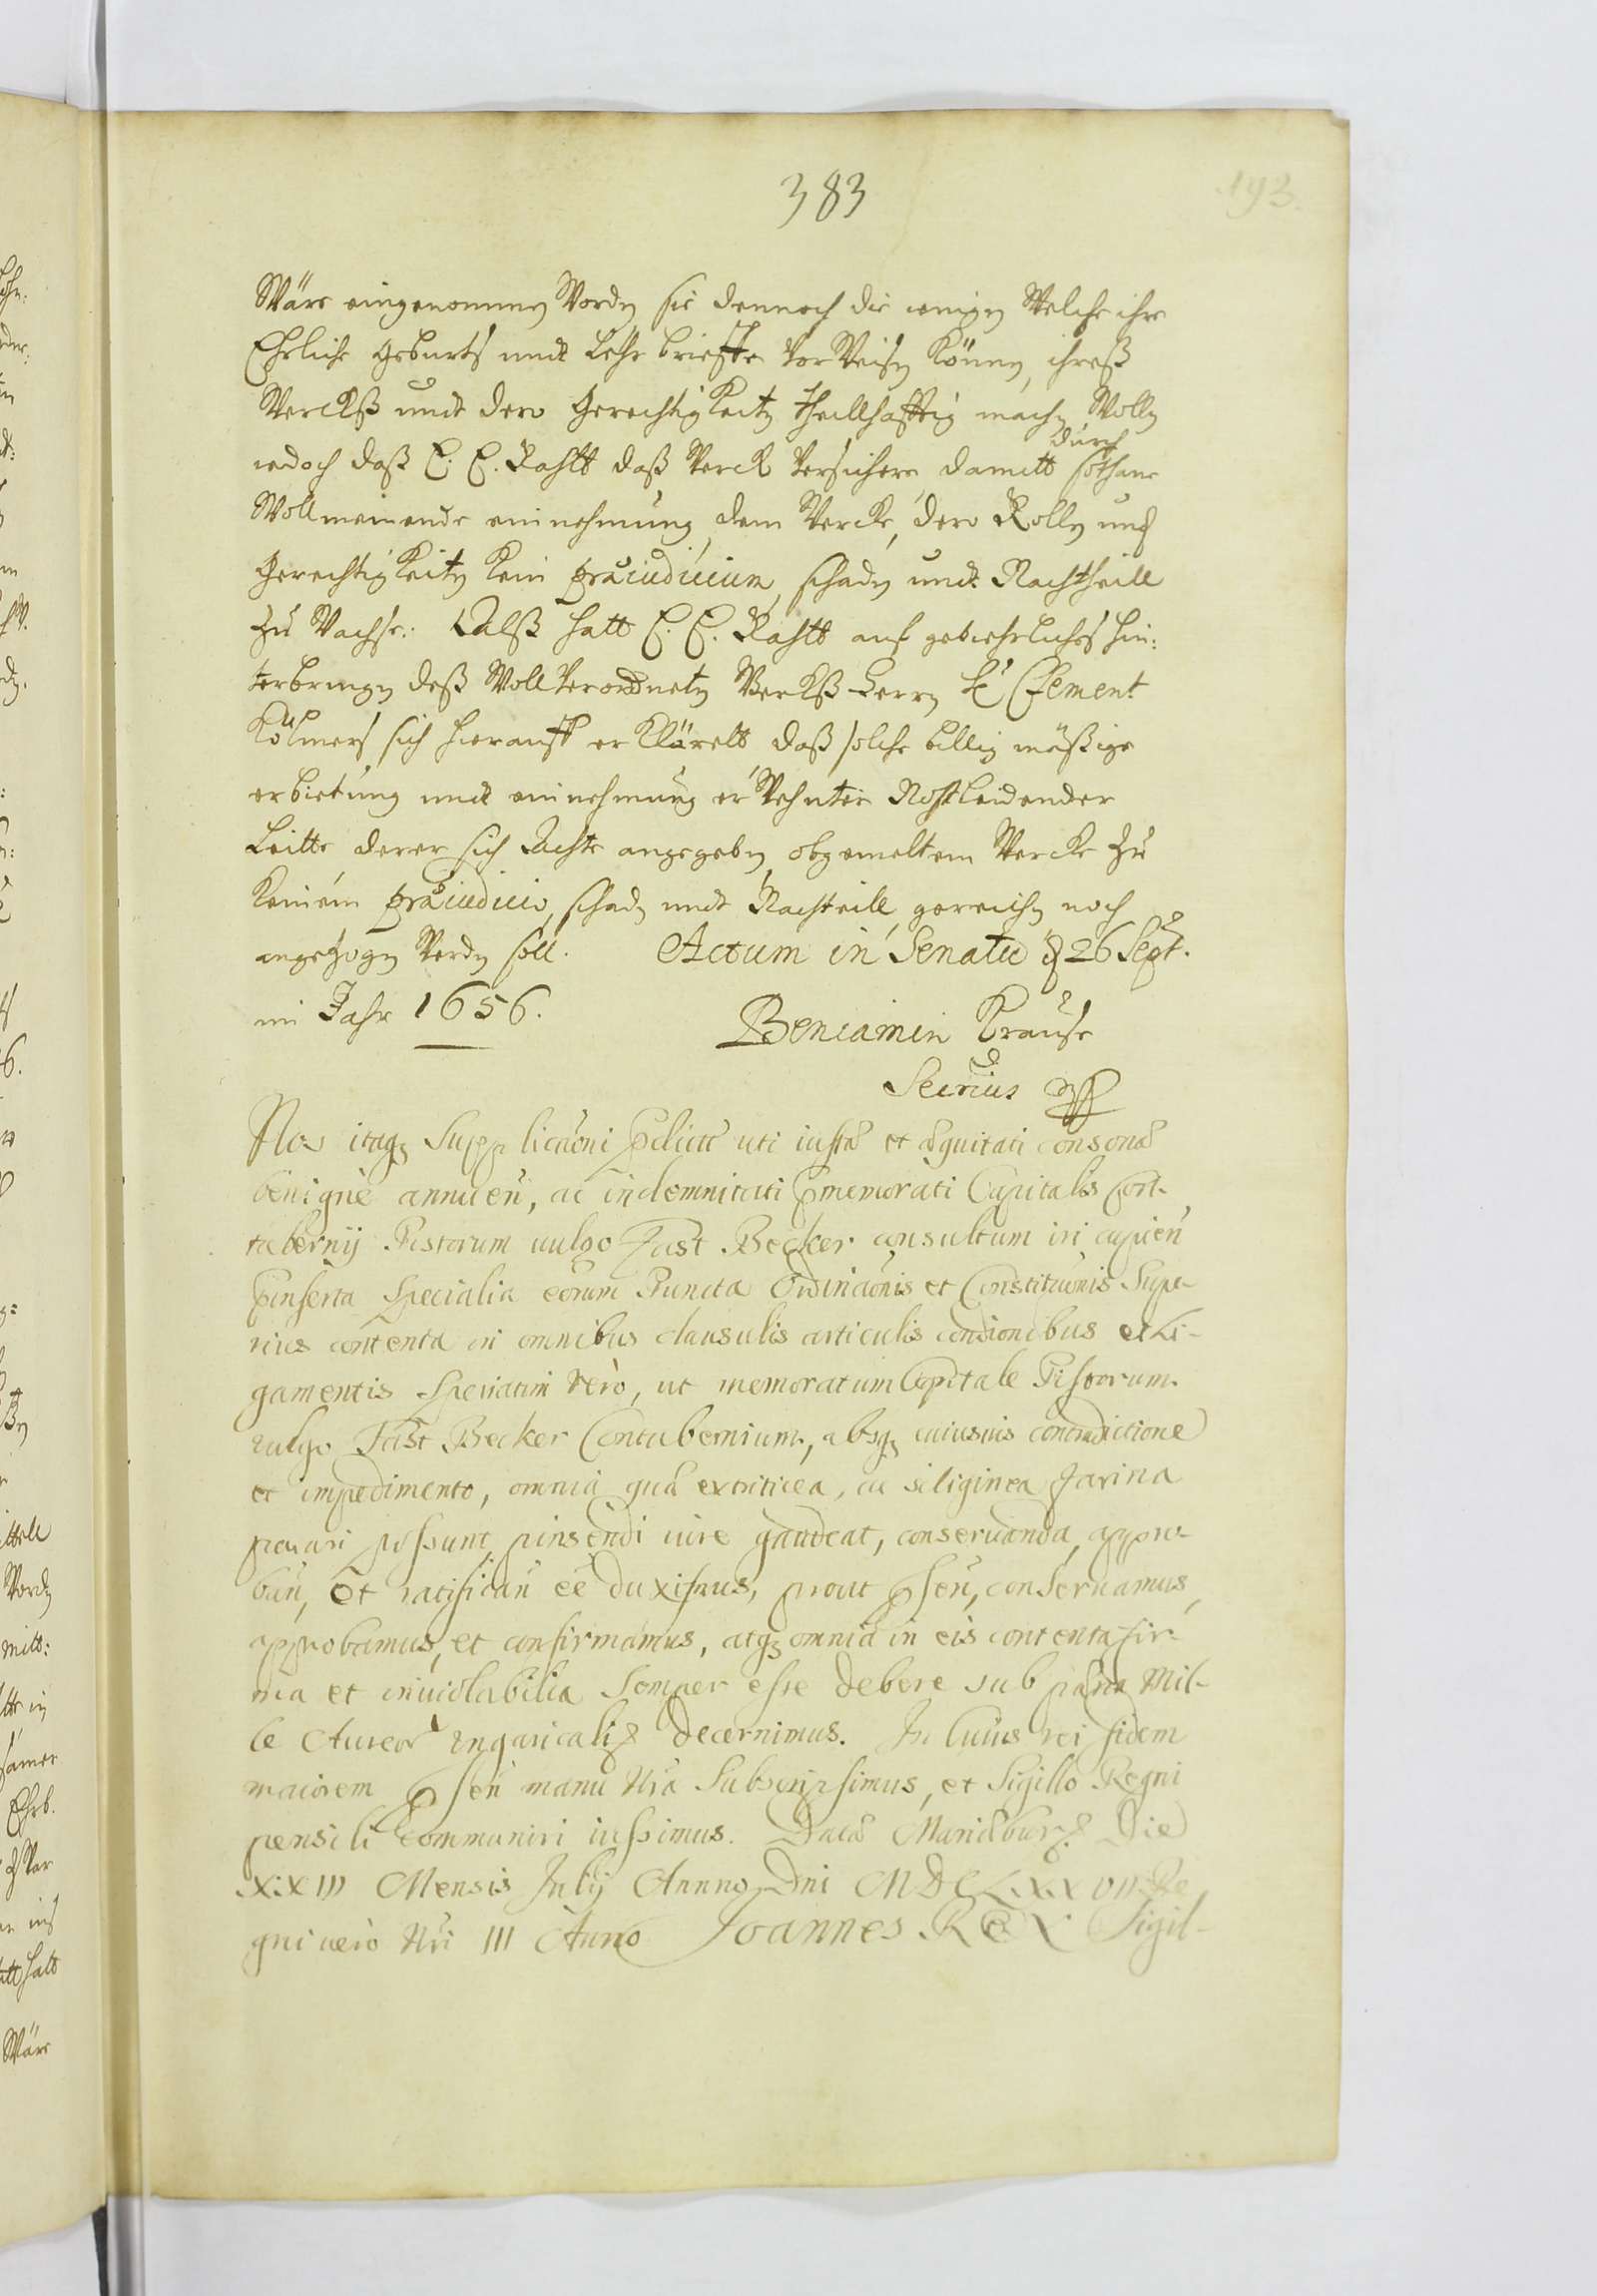 383
193.
Wärs eingenommen Worden sie dennoch die ienigen Welche ihre
Ehrliche Geburts undt Lehr brieffe vor Weisen Können, ihreß
Werckß undt dero Gerechtigkeiten theillhafftig machen Wollen
iedoch daß E. E. Rahtt daß Werck versichere damitt durch sothane
Wollmeinende einnehmung dem Wercke, dero Rollen und
Gerechtigkeiten kein præiudicium, schaden undt Nachtheill
zu Wachse: Alß hatt E. E. Rahtt auf gebiehrliches hin:
terbringen deß Woll Verordneten Werckß Herren H Clement
Kölmers sich hierauff erklärett daß solche billig mäßige
erbietung undt einnehmung er Wehnter Nohtleidender
Leitte derer sich Achte angegeben, obgemeltem Wercke zu
keinem præiudicio, schaden undt Nachteill gereichen noch
angezogen Werden soll. Actum in Senatu d 26 Sept.
im Jahr 1656.
Beniamin Krause
Secrius
Nos itaq3 Supplicaoni uti iustæ et æquitati consonæ
benigne annuen, ac indemnitati pmemorati Capitalis Con-
tubernij Pistorum vulgo Fast Becker consultum iri cupien
pinserta Specialia eorum Puncta Ordinaonis et Constituonis Supe-
rius contenta in omnibus clausulis articulis condionibus et Li-
gamentis Speciatim verò, ut memoratum Capitale Pistorum
vulgo Fast Becker Contubernium, absq3 cuiusuis contradictione
et impedimento, omnia quæ ex triticea, ac siliginea farina
parari possunt pinsendi iure gaudeat, conseruanda, appro-
ban, et ratifican eē duximus, prout psen, conseruamus,
approbamus, et confirmamus, atq3 omnia in eis contenta fir-
ma et inuiolabilia semper esse debere sub pæna Mil-
le Aureor Ungaricaliū decernimus. In Cuius rei fidem
maiorem psen manu Nra Subscripsimus, et Sigillo Regni
pensili communiri iussimus. Datæ Mariæburgi Die
XXIII Mensis Julij Annno Dni MDCLXXVII Re
gni vero Nri III Anno Joannes REX Sigil-